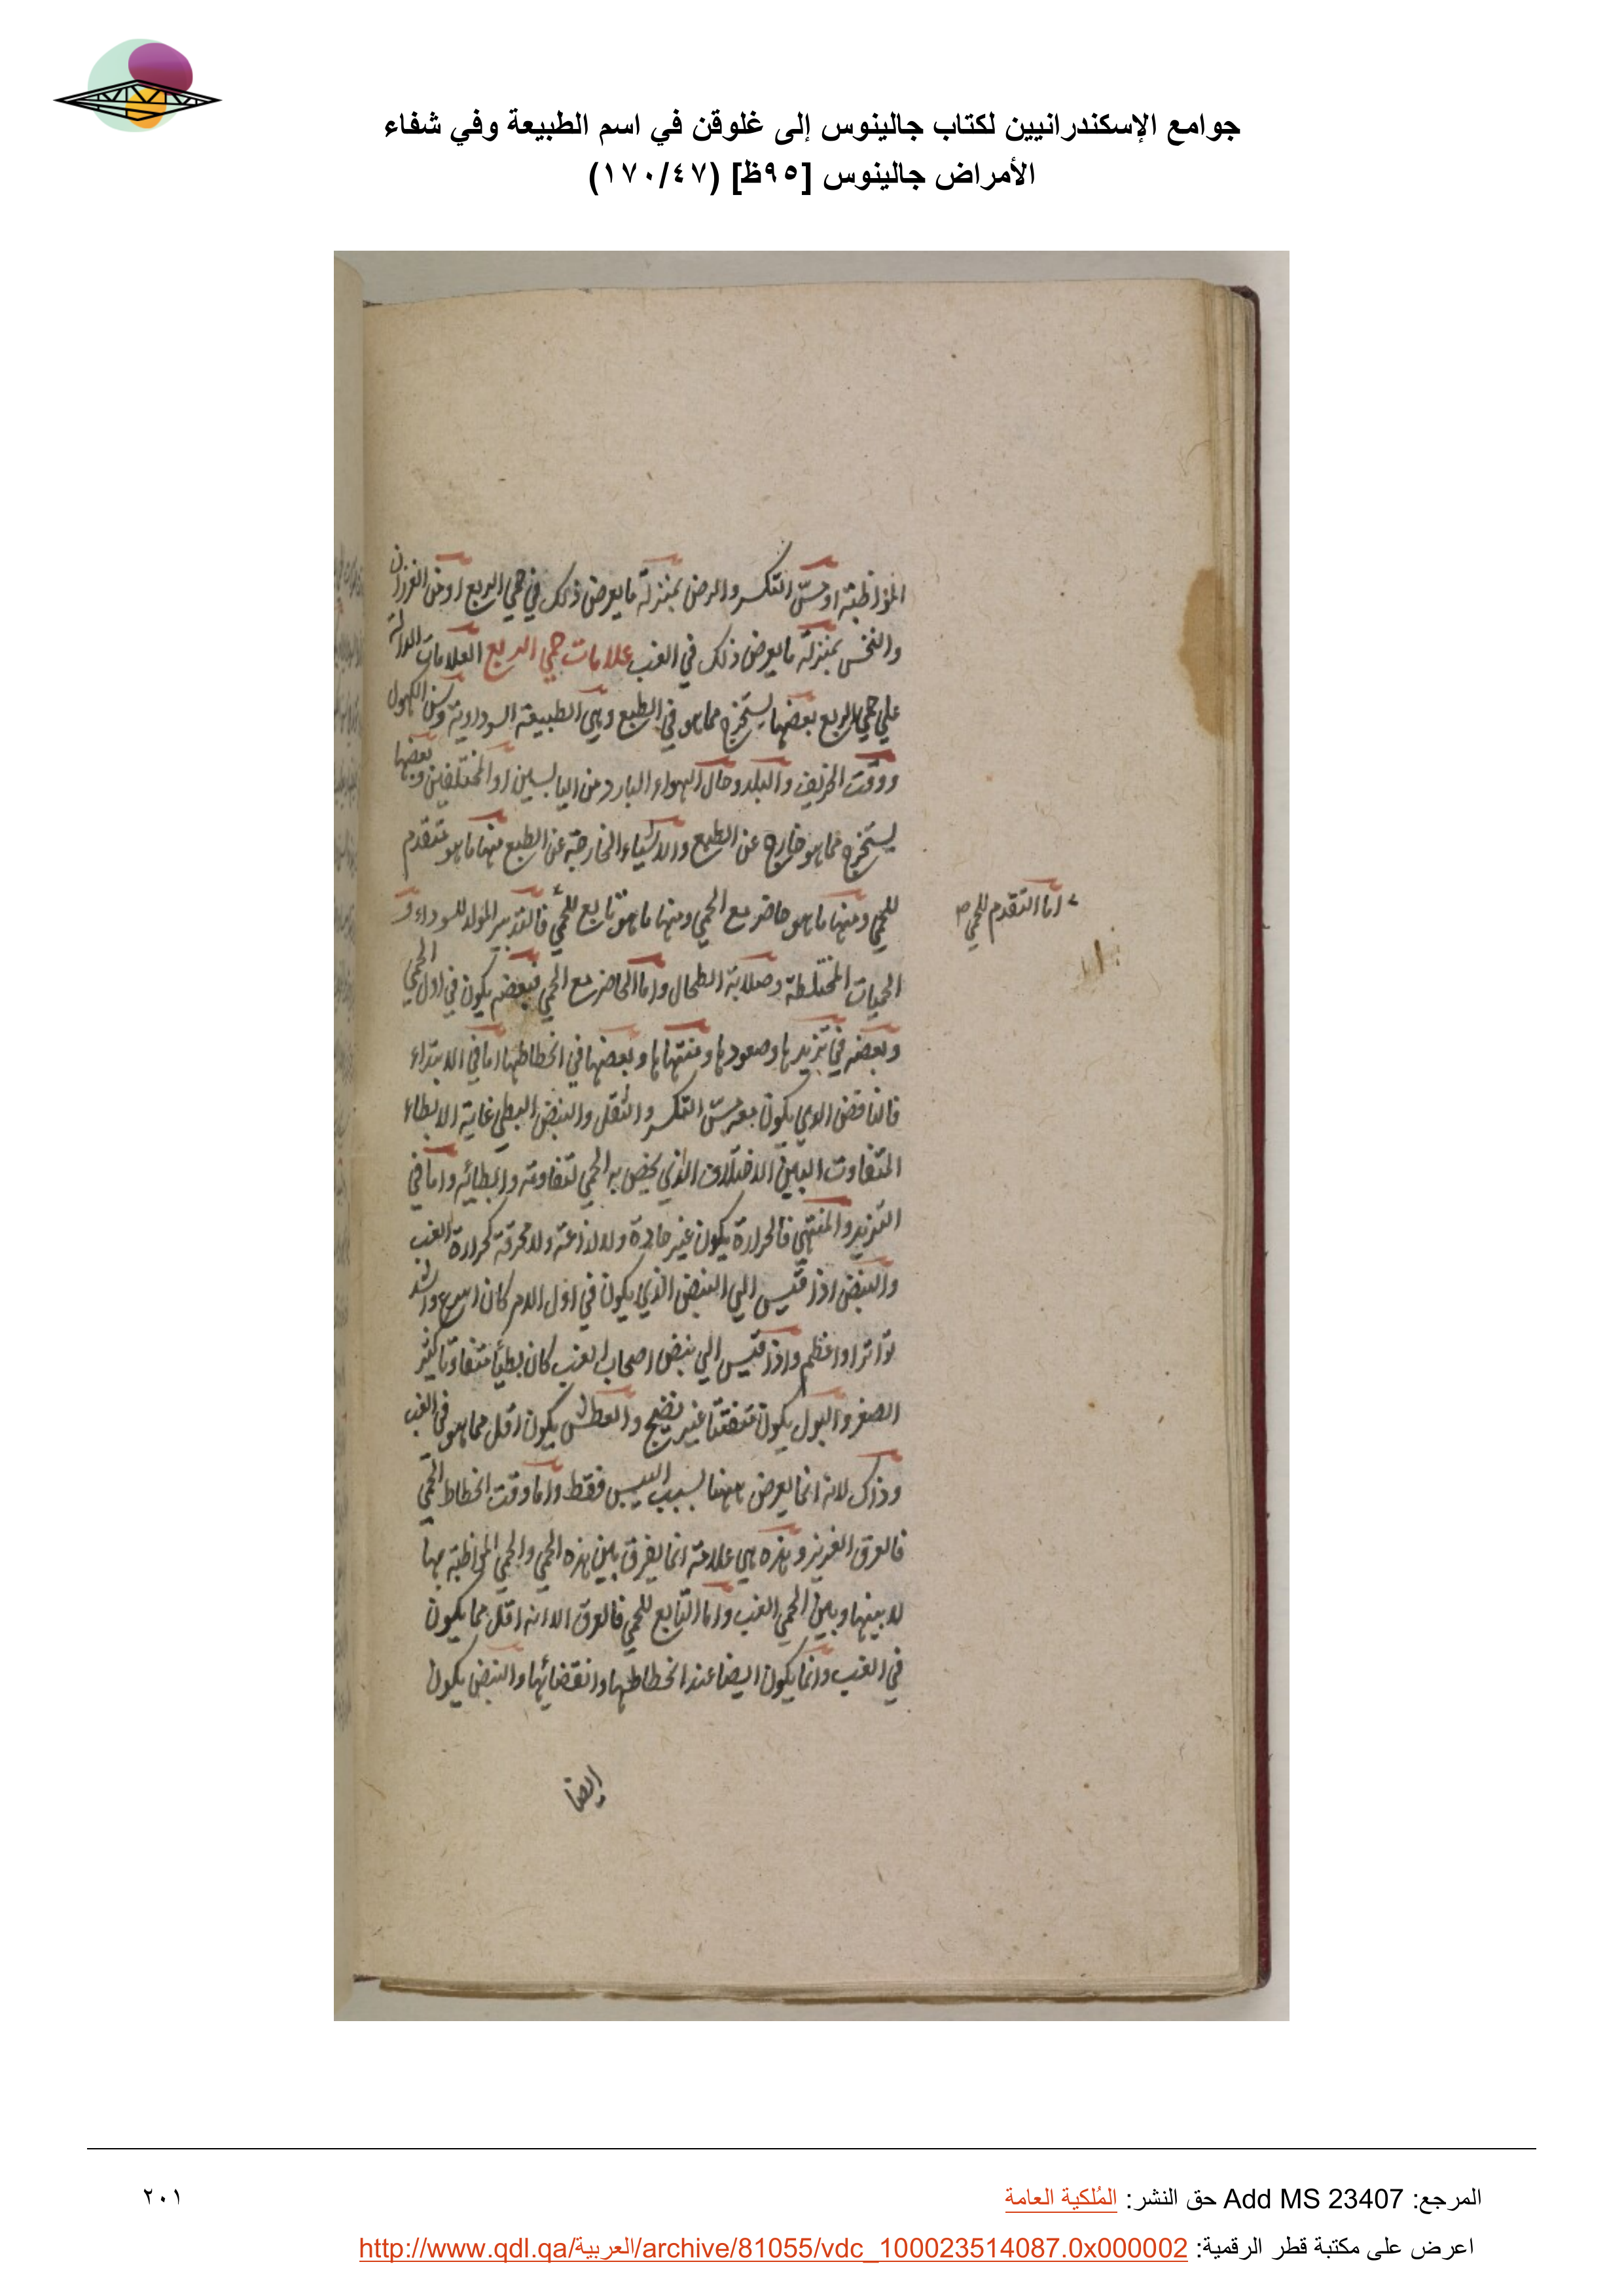 جوامع الإسكندرانيين لكتاب جالينوس إلى غلوقن في اسم الطبيعة وفي شفاء
الأمراض جالينوس [٩٥ظ] (١٧٠/٤٧)
المواظبة او حسّ التكسر والرض بمنزلة ما يعرض ذلك في حمي الربع او من الغرزان
والنخس بمنزلة ما يعرض ذلك في الغب علامات حمي الربع العلامات الدالة
علي حمي الربع بعضها يستخرج مما هو في الطبع وهي الطبيعة السوداوية وسن الكهول
ووقت الخريف والبلد وحال الهواء البارد من اليابسين او المختلفين وبعضها
يستخرج مما هو خارج عن الطبع والاشياء الخارجة عن الطبع منها ما هو متقدم
للحمي ومنها ما هو حاضر مع الحمي ومنها ما هو تابع للحمي فالتدبير المولد للسوداء و
اما المتقدم للحمي صح
الحميات المختلطة وصلابة الطحال واما الحاضر مع الحمي فبعضه يكون في اول الحمي
وبعضه في تزيدها وصعودها ومنتهاها وبعضها في انحطاطها اما في الابتداء
فالنافض الذي يكون معه حسّ التكسر والثقل والنبض البطي غاية الابطاء
المتفاوت البين الاختلاف الذي يخص به الحمي لتفاوته وابطائه واما في
التزيد والمنتهي فالحرارة يكون غير حادة ولا لاذعة ولا محرقة كحرارة الغب
والنبض اذا قيس الي النبض الذي يكون في اول الامر كان اسرع واشد
تواترا واعظم واذا قيس الي نبض اصحاب الغب كان بطيا متفاوتا كثير
الصغر والبول يكون غير نضيج والعطش يكون اقل مما هو في الغب
وذلك لانه انما يعرض ههنا بسبب اليبس فقط واما وقت انحطاط الحمي
فالعرق الغزيز وهذه هي علامة انما يفرق بين هذه الحمي والحمي المواظبة بها
لا بينها وبين الحمي الغب واما التابع للحمي فالعرق الا انه اقل مما يكون
في الغب وانما يكون ايضا عند انحطاطها وانقضائها والنبض يكون
ايضا
المرجع: Add MS 23407 حق النشر: المُلكية العامة
٢٠١
اعرض على مكتبة قطر الرقمية: http://www.qdl.qa/العربية/archive/81055/vdc_100023514087.0x000002